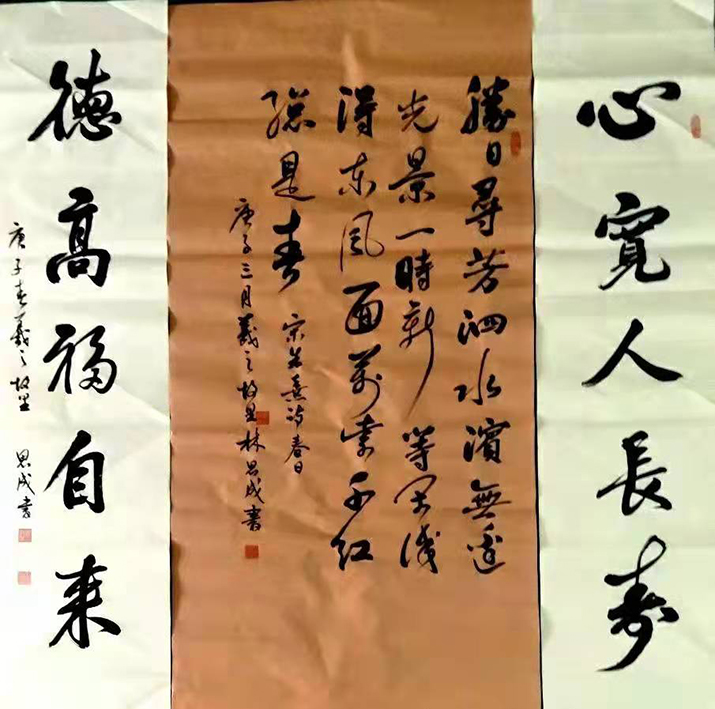 心寬人長寿
勝日尋芳泗水濱無邊
光景一時新等閑識
得东風面萬紫千红
總是春
宋朱熹诗春日
庚子三月羲之故里林思成書
德高福自来
庚子春羲之故里 思成書